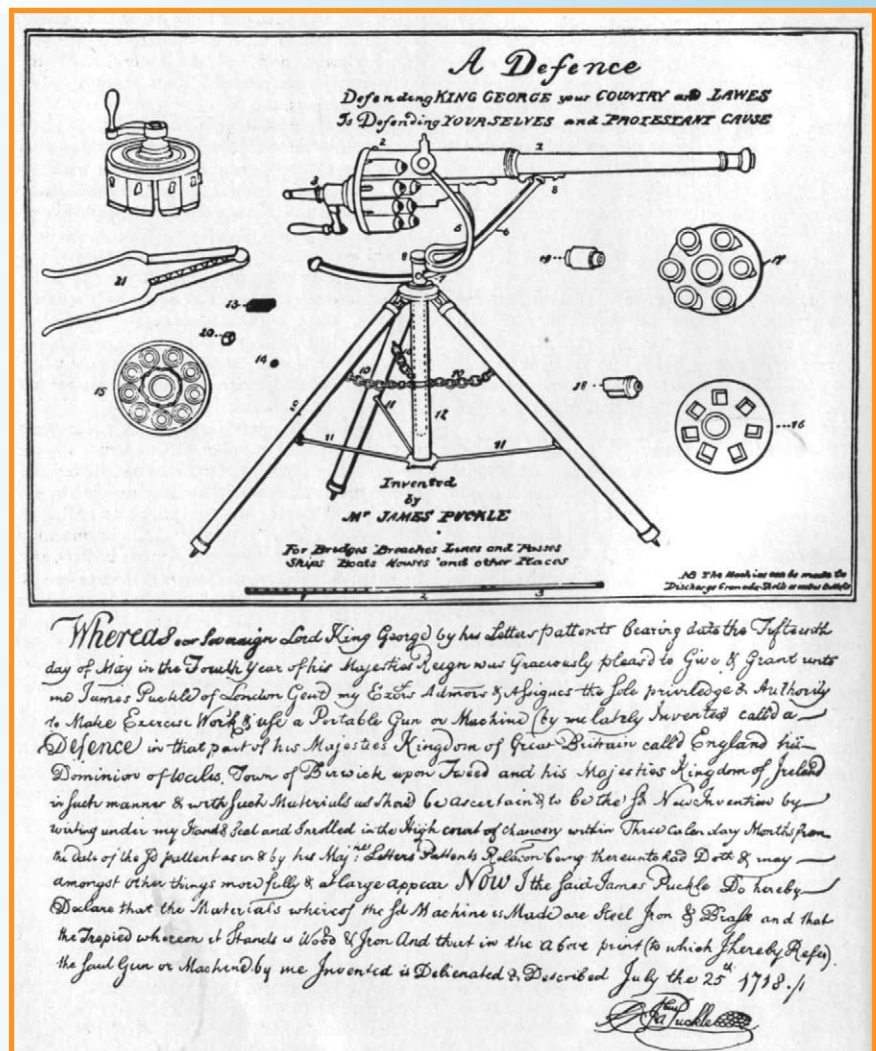 A Defence
Defending KING GEORGE your COUNTRY and LAWES
Is Defending YOURSELVES and PROTESTANT CAUSE
2
1
3
8
5
6
8
7
19
17
21
13
20
14
15
10
10
9
12
18
16
11
11
11
Invented
by
Mr JAMES PUCKLE
For Bridges Breaches Lines and Passes
Ships Boats Houses and other Places
1 2 3
NB The Machine can be made to
Discharge Granado Shells
Whereas our Sovereign Lord King George by his Letters pattents bearing date the Fifteenth
day of May in the Fourth Year of his Majesties Reign was Graciously pleas'd to Give & Grant unto
me James Puckle of London Gent my Exōrs Admors & Assignes the sole priviledge & Authority
to Make Exercise Work & use a Portable Gun or Machine (by me lately Invented) call'd a
Defence in that part of his Majesties Kingdom of Great Britain call'd England his
Dominion of Wales, Town of Berwick upon Tweed and his Majesties Kingdom of Ireland
in such manner & with such Materials as Should be ascertain'd to be the sd New Invention by
writing under my Hand & Seal and Inrolled in the High court of chancery within Three Calendar Months from
the date of the sd pattent as in & by his Majties Letters Pattents Relacon being thereunto had Doth & may
amongst other things more fully & at large appear NOW I the said James Puckle Do hereby
Declare that the Materials whereof the sd Machine is Made are Steel Iron & Brass and that
the Trepied whereon it Stands is Wood & Iron And that in the above print (to which I hereby Refer)
the said Gun or Machine by me Invented is Delienated & Described July the 25th 1718.
Ja Puckle